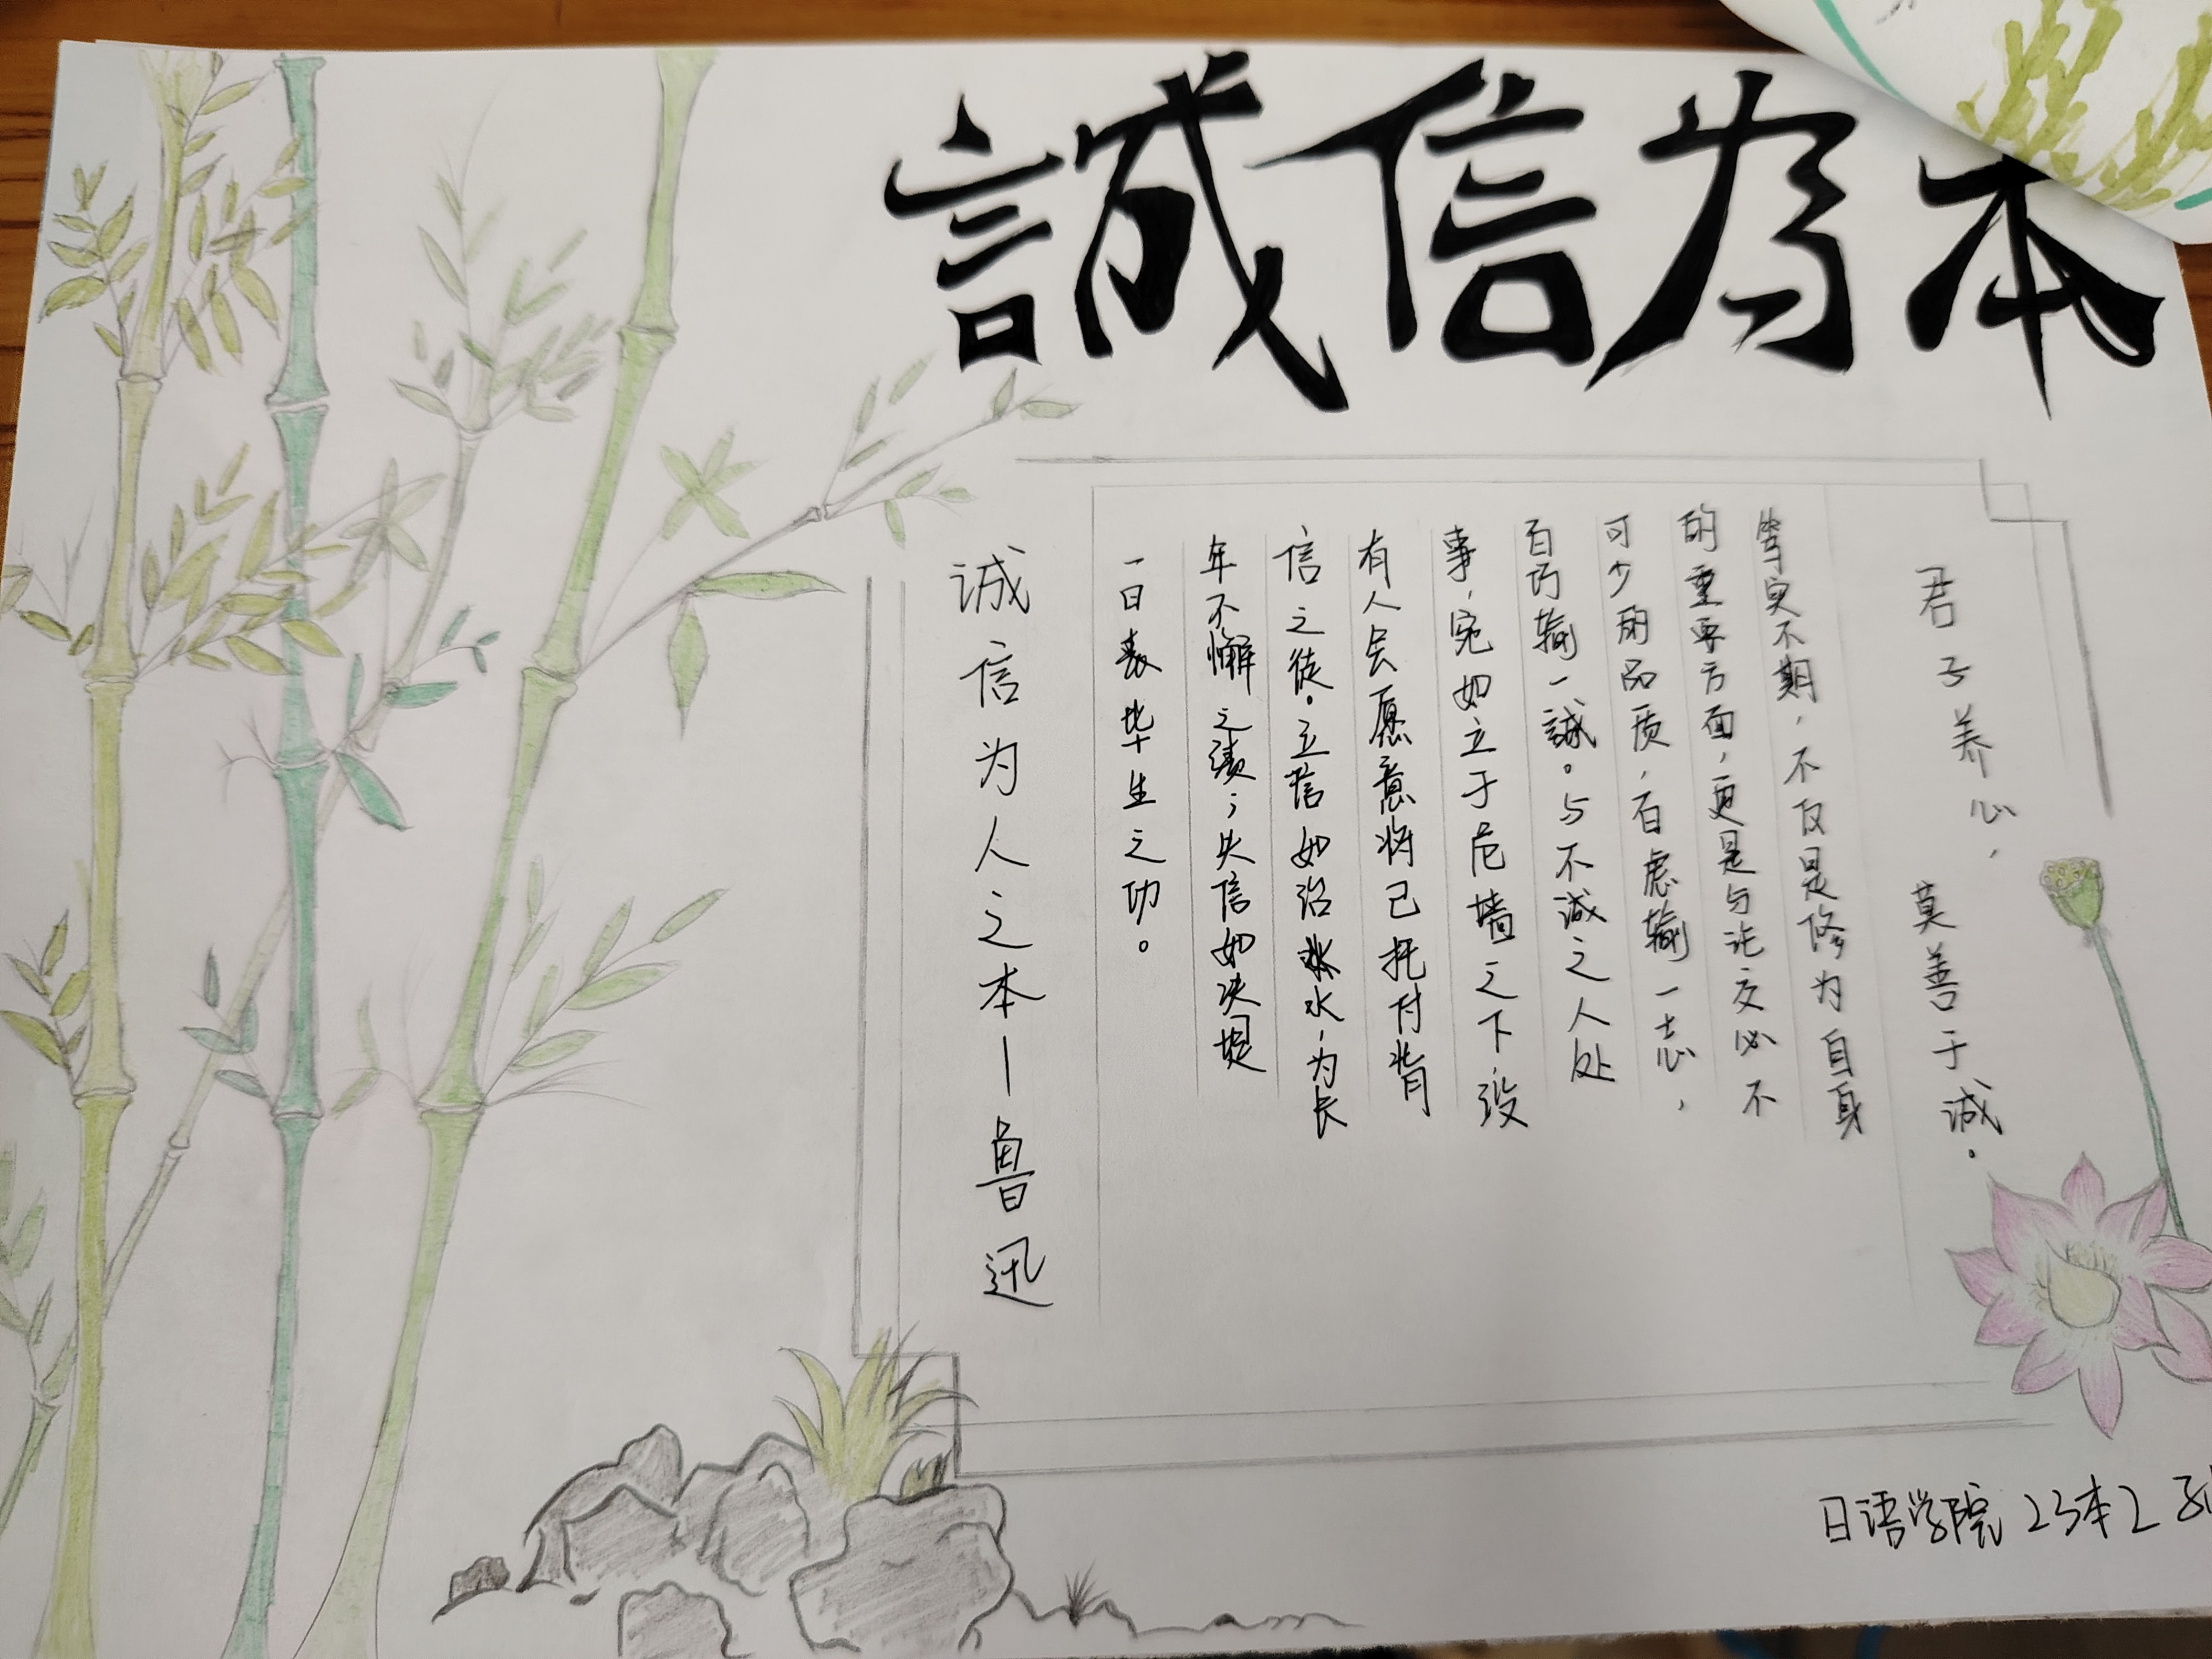 誠信为本
君子养心，莫善于诚。
笃实不期，不仅是修为自身
的重要方面，更是与论交必不
可少的品质，百虑输一志，
百巧输一誠。与不诚之人处
事，宛如立于危墙之下，没
有人会愿意将己托付背
信之徒。立信如沿水，为长
年不懈之绩；失信如决堤
一日丧毕生之功。
诚信为人之本—鲁迅
日语学院 23本2